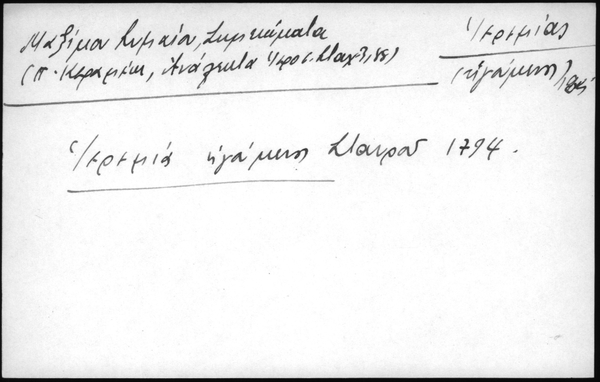 Μαξίμου Συμαίου, Σημειώματα
(Π. Κεραμέως, Ἀνάλεκτα Ἱεροσ. Σταχ. 3, 88)
Ἱερεμίας
(ἡγούμενος)
Ἱερεμιά ἡγούμενος Σταυροῦ 1794.